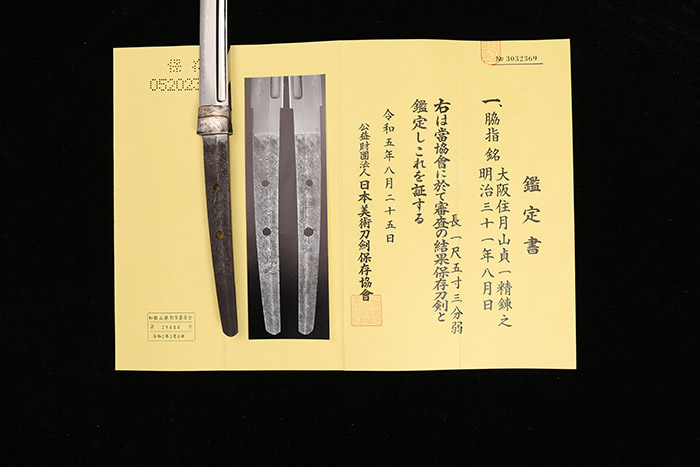 № 3032369
鑑定書
一、脇指 銘 大阪住月山貞一精錬之
明治三十一年八月日
長一尺五寸三分弱
右は當協會に於て審査の結果保存刀剣と
鑑定しこれを証する
令和五年八月二十五日
公益財團法人 日本美術刀剣保存協會
052023
和歌山県教育委員会